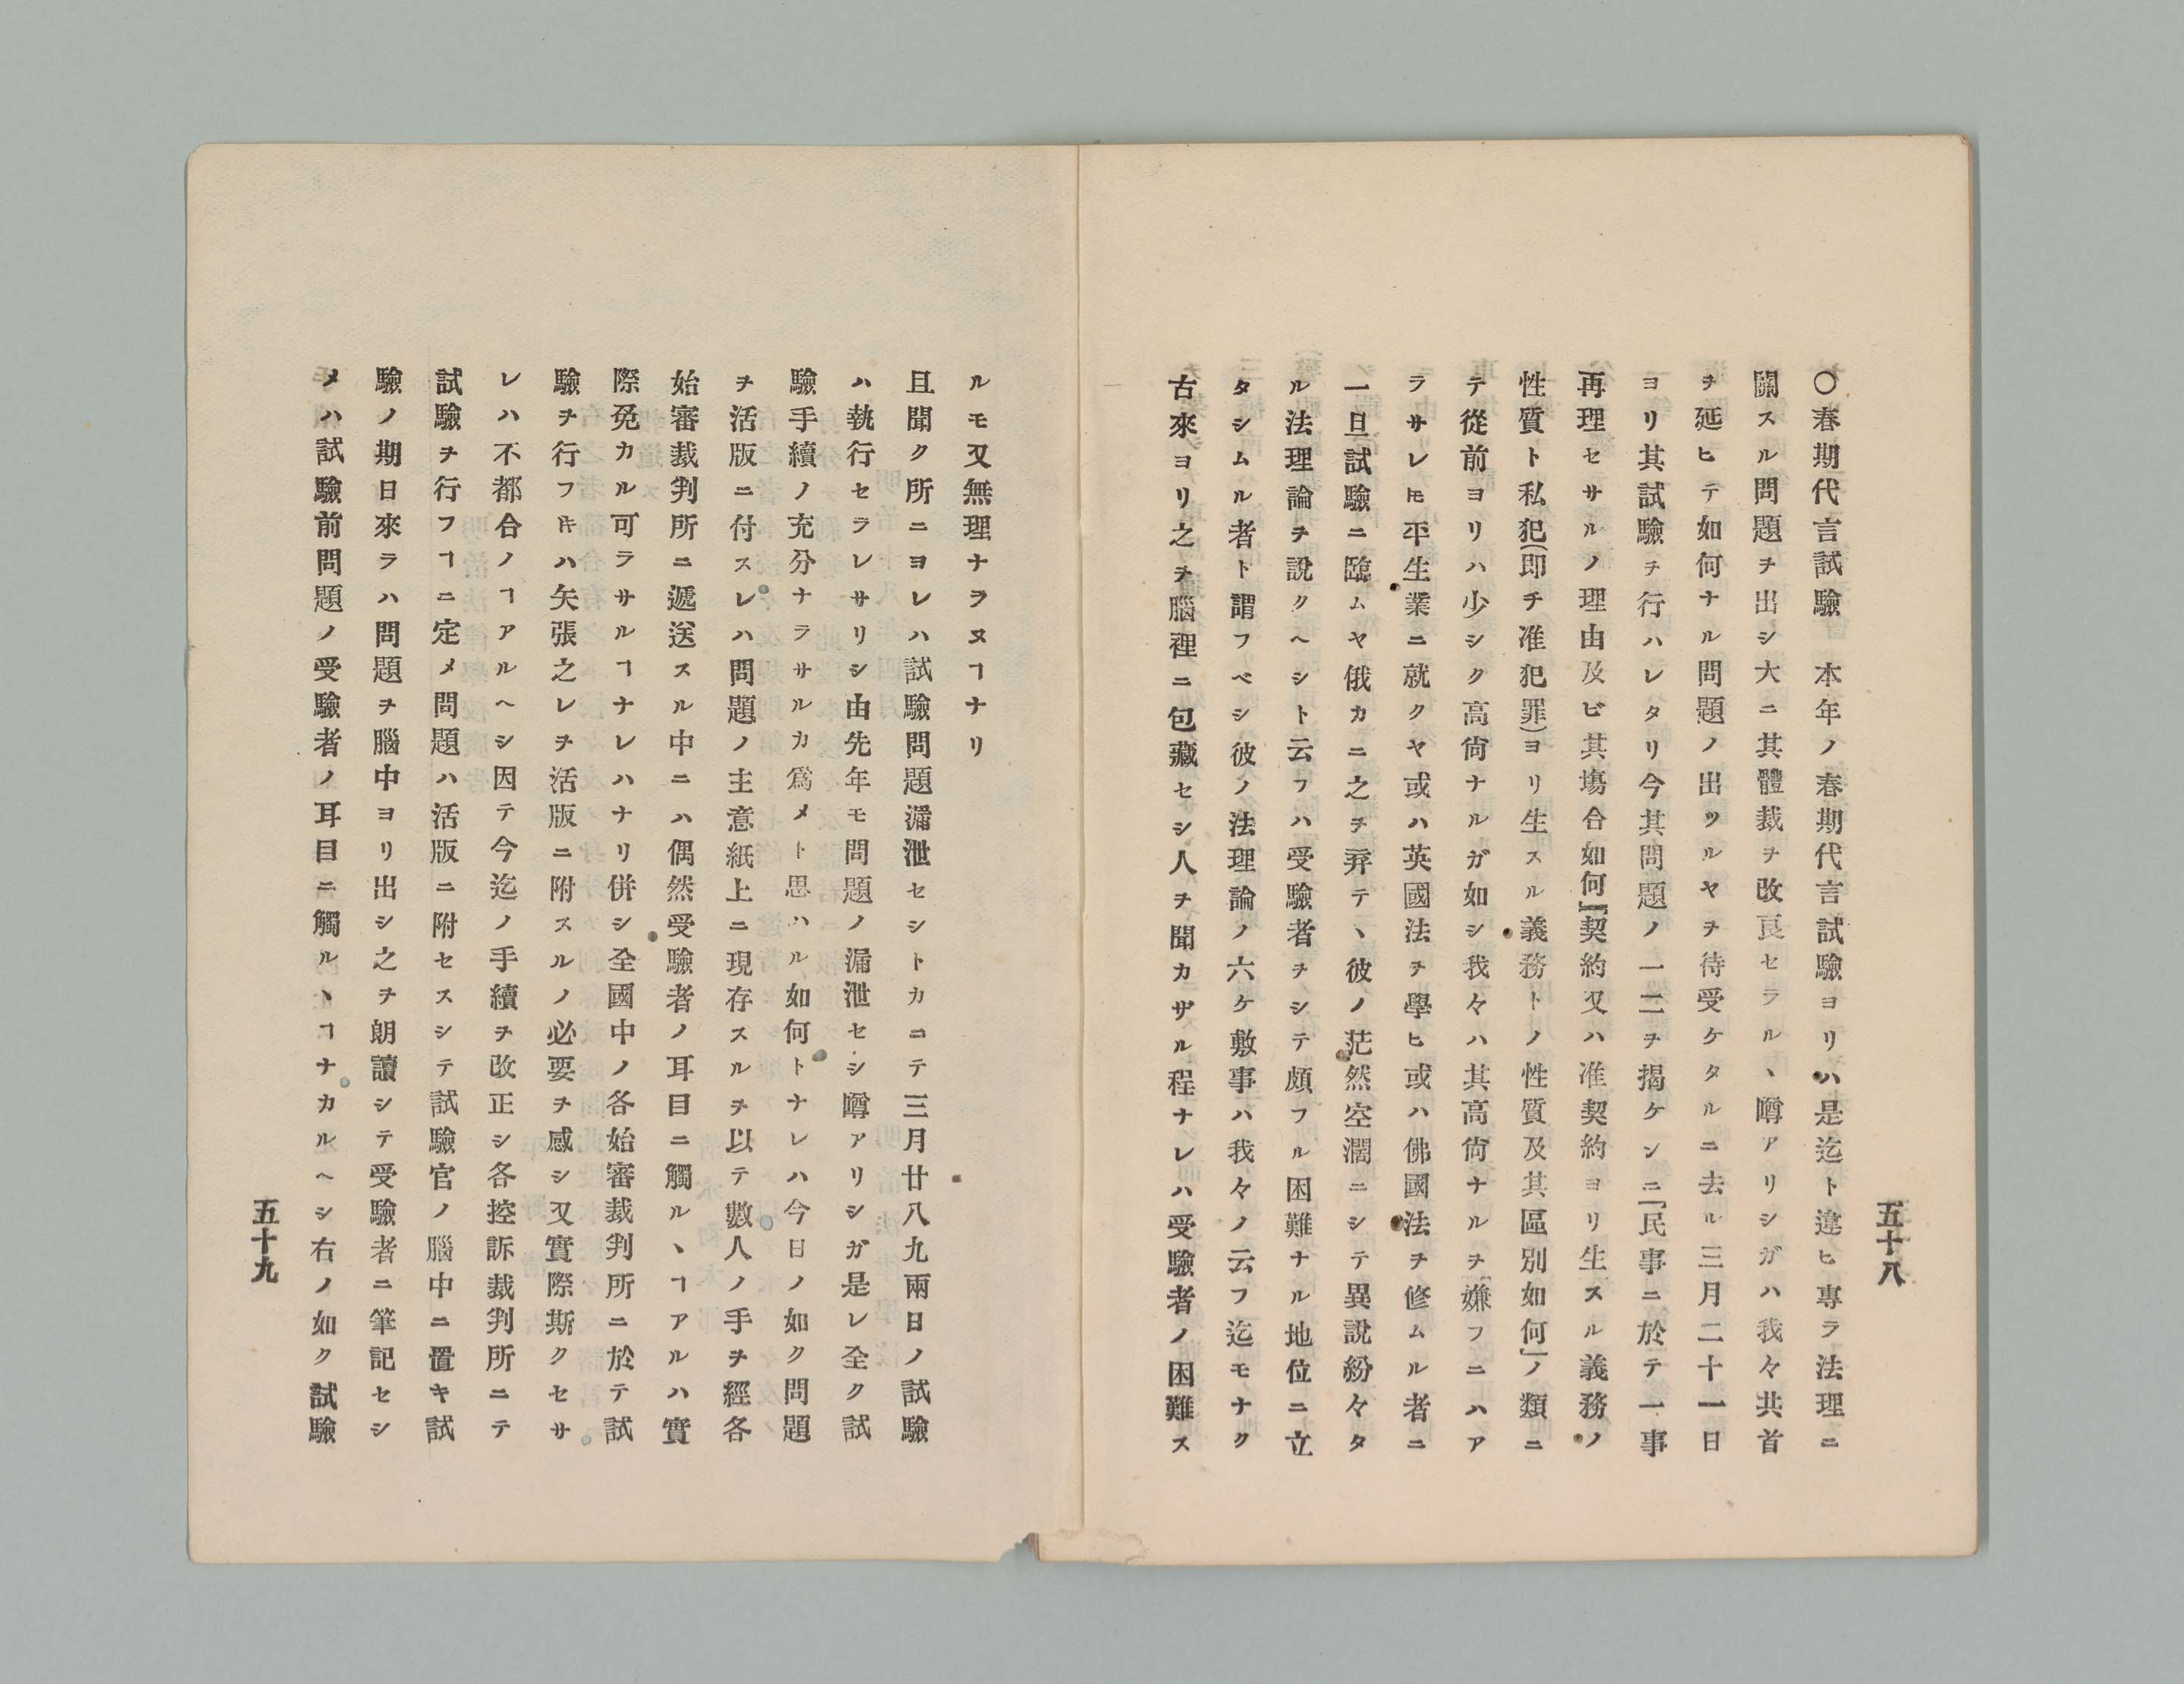 五十八
〇春期代言試驗　本年ノ春期代言試驗ヨリハ是迄ト違ヒ專ラ法理ニ
關スル問題ヲ出シ大ニ其體裁ヲ改良セラルヽ噂アリシガハ我々共首
ヲ延ヒテ如何ナル問題ノ出ツルヤヲ待受ケタルニ去ル三月二十一日
ヨリ其試驗ヲ行ハレタリ今其問題ノ一二ヲ揭ケンニ「民事ニ於テ一事
再理セサルノ理由及ビ其塲合如何」「契約又ハ准契約ヨリ生スル義務ノ
性質ト私犯(即チ准犯罪)ヨリ生スル義務トノ性質及其區別如何」ノ類ニ
テ從前ヨリハ少シク高尙ナルガ如シ我々ハ其高尙ナルヲ嫌フニハア
ラサレ𪜈平生業ニ就クヤ或ハ英國法ヲ學ヒ或ハ佛國法ヲ修ムル者ニ
一旦試驗ニ臨ムヤ俄カニ之ヲ弃テヽ彼ノ茫然空濶ニシテ異說紛々タ
ル法理論ヲ說クヘシト云フハ受驗者ヲシテ頗フル困難ナル地位ニ立
タシムル者ト謂フベシ彼ノ法理論ノ六ケ敷事ハ我々ノ云フ迄モナク
古來ヨリ之ヲ腦裡ニ包藏セシ人ヲ聞カザル程ナレハ受驗者ノ困難ス
ルモ又無理ナヲヌヿナリ
且聞ク所ニヨレハ試驗問題漏泄セシトカニテ三月廿八九兩日ノ試驗
ハ執行セラレサリシ由先年モ問題ノ漏泄セシ噂アリシガ是レ全ク試
驗手續ノ充分ナラサルカ爲メト思ハル如何トナレハ今日ノ如ク問題
ヲ活版ニ付スレハ問題ノ主意紙上ニ現存スルヲ以テ數人ノ手ヲ經各
始審裁判所ニ遞送スル中ニハ偶然受驗者ノ耳目ニ觸ルヽヿアルハ實
際免カル可ラサルヿナレハナリ併シ全國中ノ各始審裁判所ニ於テ試
驗ヲ行フ𬼀ハ矢張之レヲ活版ニ附スルノ必要ヲ感シ又實際斯クセサ
レハ不都合ノヿアルヘシ因テ今迄ノ手續ヲ改正シ各控訴裁判所ニテ
試驗ヲ行フヿニ定メ問題ハ活版ニ附セスシテ試驗官ノ腦中ニ置キ試
驗ノ期日來ラハ問題ヲ腦中ヨリ出シ之ヲ朗讀シテ受驗者ニ筆記セシ
メハ試驗前問題ノ受驗者ノ耳目ニ觸ルヽヿナカルヘシ右ノ如ク試驗
五十九